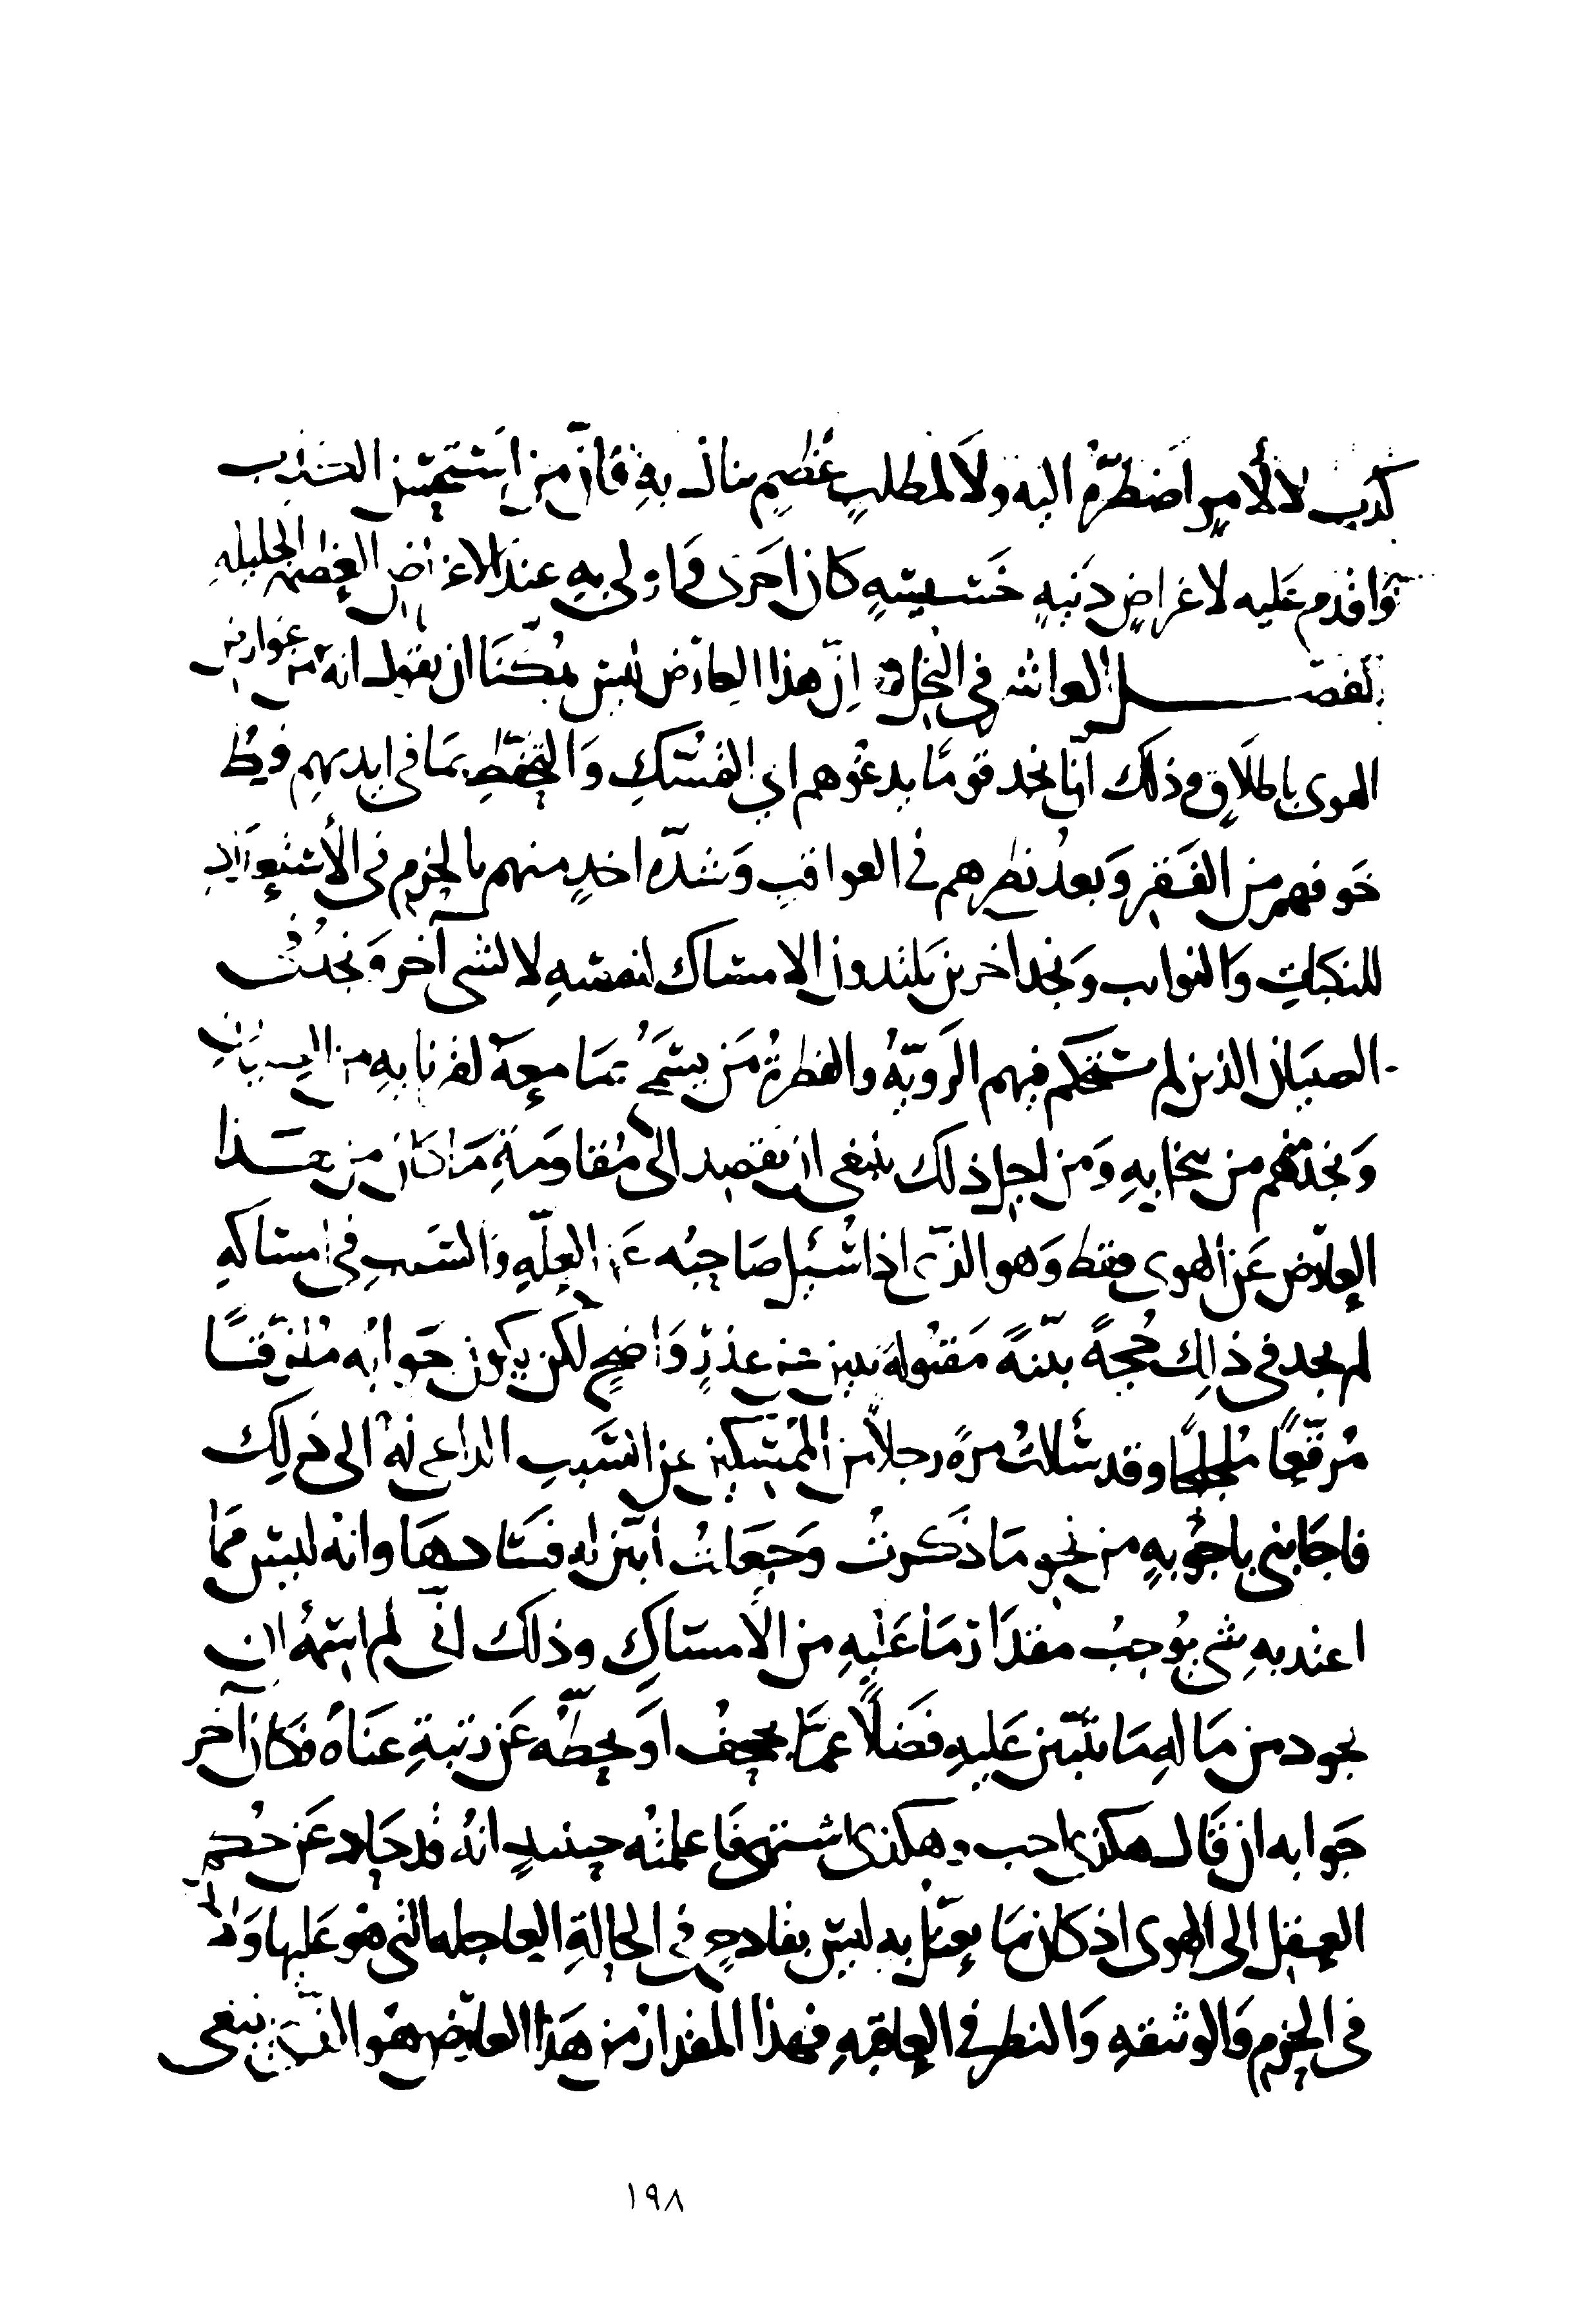 كذب لا لأمر اضطره اليه ولا لمطلب عظيم ينال به فان من استحسن الكذب
واقدم عليه لاغراض دنيه خسيسه كان احرى واولى به عند الاغراض العظيمه الجليله
الفصل العاشر في البخل ان هذا العارض ليس يمكننا ان نقول انه من عوارض
الهوى بالاطلاق وذلك انا نجد قومًا يدعوهم الى التمسك والتحفظ بما في ايديهم فرط
خوفهم من الفقر وبعد نظرهم في العواقب وشدّه اخذٍ منهم بالحزم في الاستعداد
للنكبات والنوايب ونجد اخرين يلتذون الامساك لنفسه لا لشي آخر ونجد من
الصبيان الذين لم تستحكم فيهم الرويّه والفطره من يسمح بما معه لقرنايه من الصبيان
ونجد منهم من يبخل به ومن اجل ذلك ينبغى ان نقصد الى مقاومة ما كان من هذا
العارض عن الهوى فقط وهو الذى اذا سُئل صاحبه عن العلّه والسبب في امساكه
لم يجد في ذلك حُجةً بيّنةً مقبوله تبين عن عذرٍ واضحٍ لكن يكون جوابه ملزقًا
مُرقّعًا ملجلجًا وقد سألت مرةً رجلاً من الممسكين عن السبب الداعى له الى ذلك
فاجابنى باجوبهٍ من نحو ما ذكرت وجعلت ابيّن له فسادها وانه ليس مما
اعتد به شي يوجب مقدار ما عليه من الامساك وذلك انّى لم اسمه ان
يجود من ماله ما يتبيّن عليه فضلًا عما يجحف او يحطّه عن رتبة غناه فكان آخر
جوابه ان قال هكذى احب وهكذى اشتهى فاعلمته حينيذٍ انه قد حاد عن حكم
العقل الى الهوى اذ كان ما يعتل به ليس بقادح في الحالة العاجله التي هو عليها ولا
فى الحزم والوثيقه والنظر في العاقبه فهذا المقدار من هذا العارض هو الذى ينبغى
١٩٨